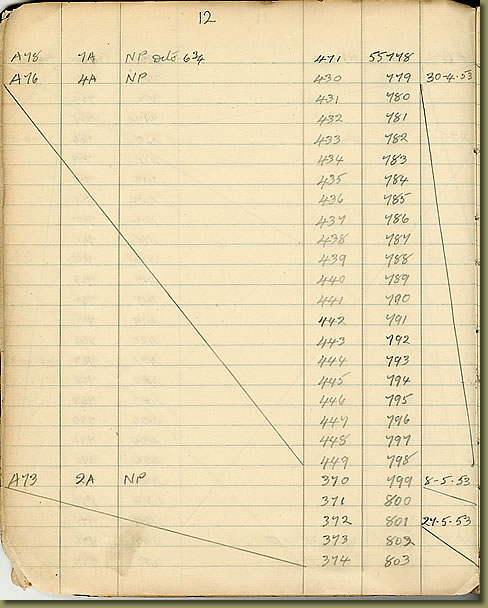 12
A78 7A NP Octo 6¾ 471 55778
A76 4A NP 430 779 30-4-53
431 780
432 781
433 782
434 783
435 784
436 785
437 786
438 787
439 788
440 789
441 790
442 791
443 792
444 793
445 794
446 795
447 796
448 797
449 798
A73 2A NP 370 799 8-5-53
371 800
372 801 27-5-53
373 802
374 803